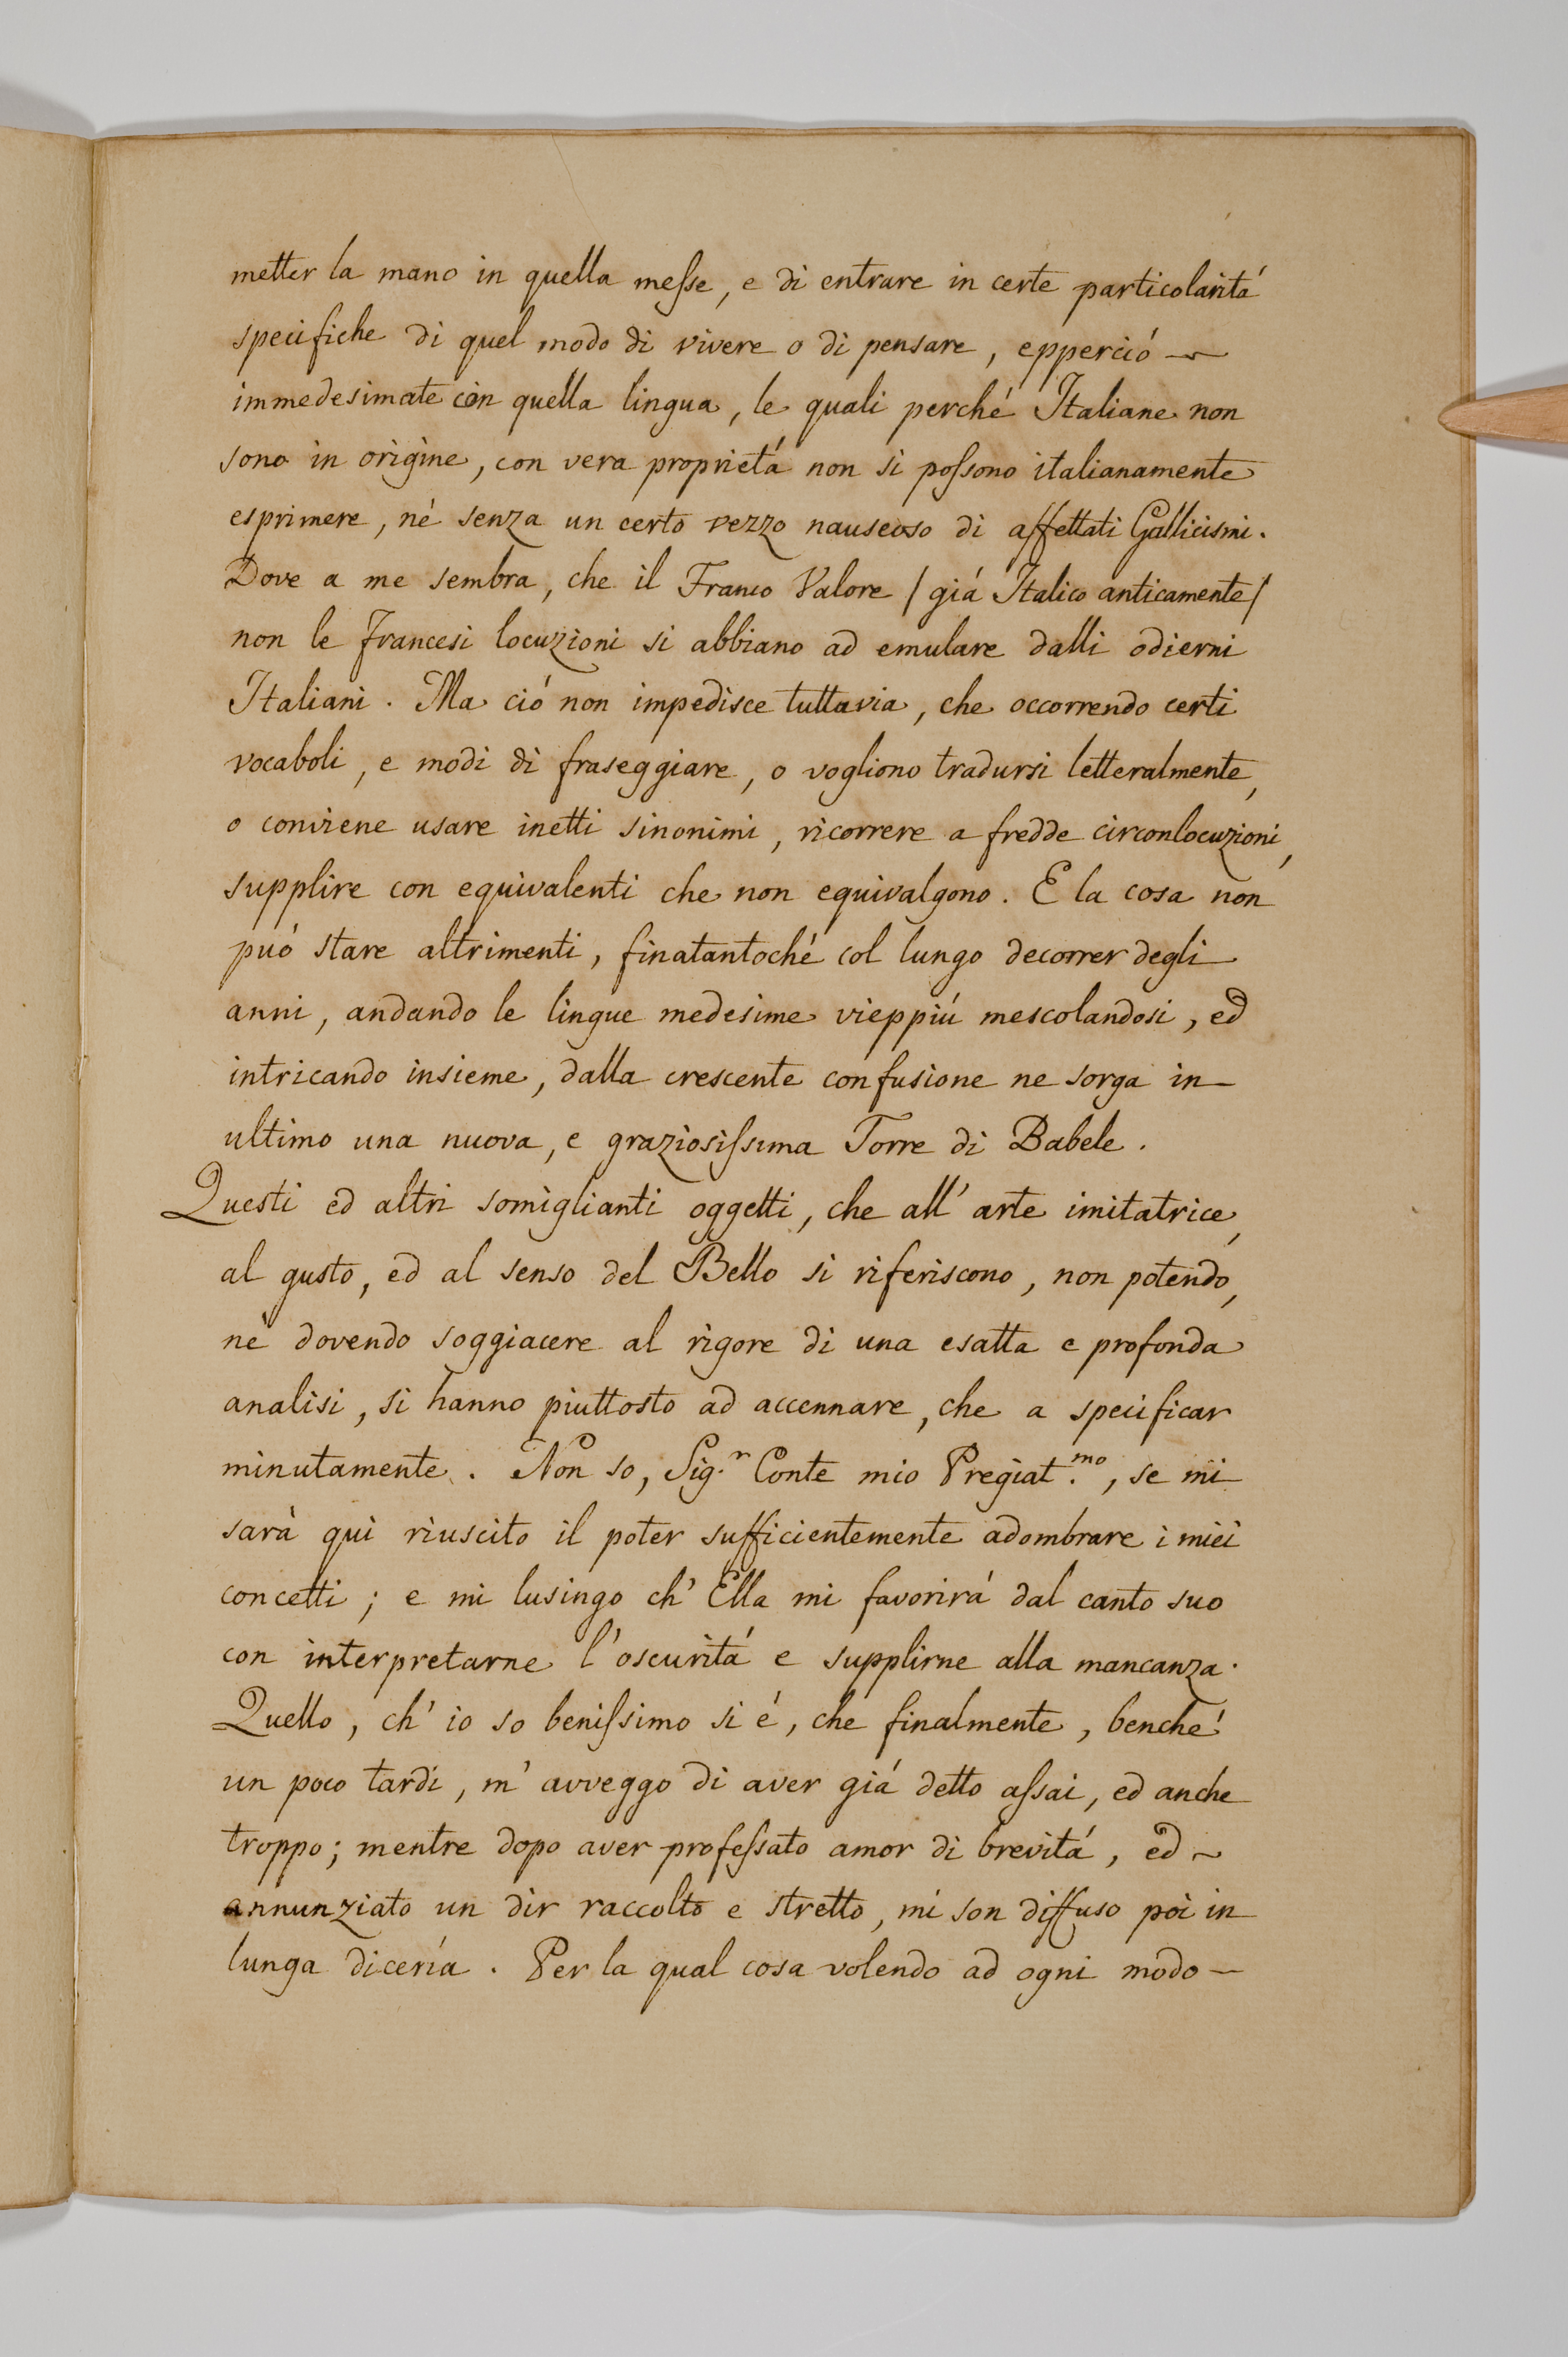 metter la mano in quella meſse, e di entrare in certe particolaritá
specifiche di quel modo di vivere o di pensare, epperció —
immedesimate con quella lingua, le quali perché Italiane non
sono in origine, con vera proprietá non si poſsono italianamente
esprimere, né senza un certo vezzo nauseoso di affettati Gallicismi.
Dove a me sembra, che il Franco Valore / giá Italico anticamente /
non le francesi locuzioni si abbiano ad emulare dalli odierni
Italiani. Ma ció non impedisce tuttavia, che occorrendo certi
vocaboli, e modi di fraseggiare, o vogliono tradursi letteralmente,
o conviene usare inetti sinonimi, ricorrere a fredde circonlocuzioni,
supplire con equivalenti che non equivalgono. E la cosa non
puó stare altrimenti, finatantoché col lungo decorrer degli
anni, andando le lingue medesime vieppiú mescolandosi, ed
intricando insieme, dalla crescente confusione ne sorga in—
ultimo una nuova, e graziosiſsima Torre di Babele.
Questi ed altri somiglianti oggetti, che all' arte imitatrice,
al gusto, ed al senso del Bello si riferiscono, non potendo,
nè dovendo soggiacere al rigore di una esatta e profonda
analisi, si hanno piuttosto ad accennare, che a specificar
minutamente. Non so, Sig.r Conte mio Pregiat.mo, se mi
sarà qui riuscito il poter sufficientemente adombrare i miei
concetti; e mi lusingo ch' Ella mi favorirá dal canto suo
con interpretarne l'oscuritá e supplirne alla mancanza.
Quello, ch' io so beniſsimo si é, che finalmente, benche'
un poco tardi, m' avveggo di aver giá detto aſsai, ed anche
troppo; mentre dopo aver profeſsato amor di brevitá, ed ~
annunziato un dir raccolto e stretto, mi son diffuso poi in
lunga dicería. Per la qual cosa volendo ad ogni modo —